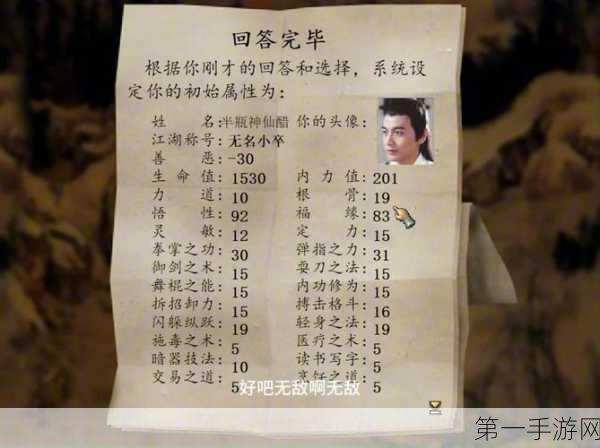 回答完毕
根据你刚才的回答和选择，系统设
定你的初始属性为：
姓名：半瓶神仙醋 你的头像：
江湖称号：无名小卒
善恶：-30
生命值：1530 内力值：201
力道：10 根骨：19
悟性：92 福缘：83
灵敏：12 定力：15
拳掌之功：30 弹指之力：31
御剑之术：15 耍刀之法：15
舞棍之能：15 内功修为：15
拆招卸力：15 搏击格斗：16
闪躲纵跃：19 轻身之法：19
施毒之术：5 医疗之术：5
暗器技法：10 读书写字：5
交易之道：5 烹饪之道：5
好吧无敌啊无敌
第一手游网